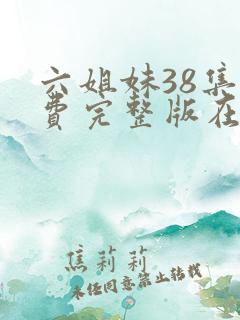 六姐妹38集
费完整版在
焦莉莉
未经同意禁止转载